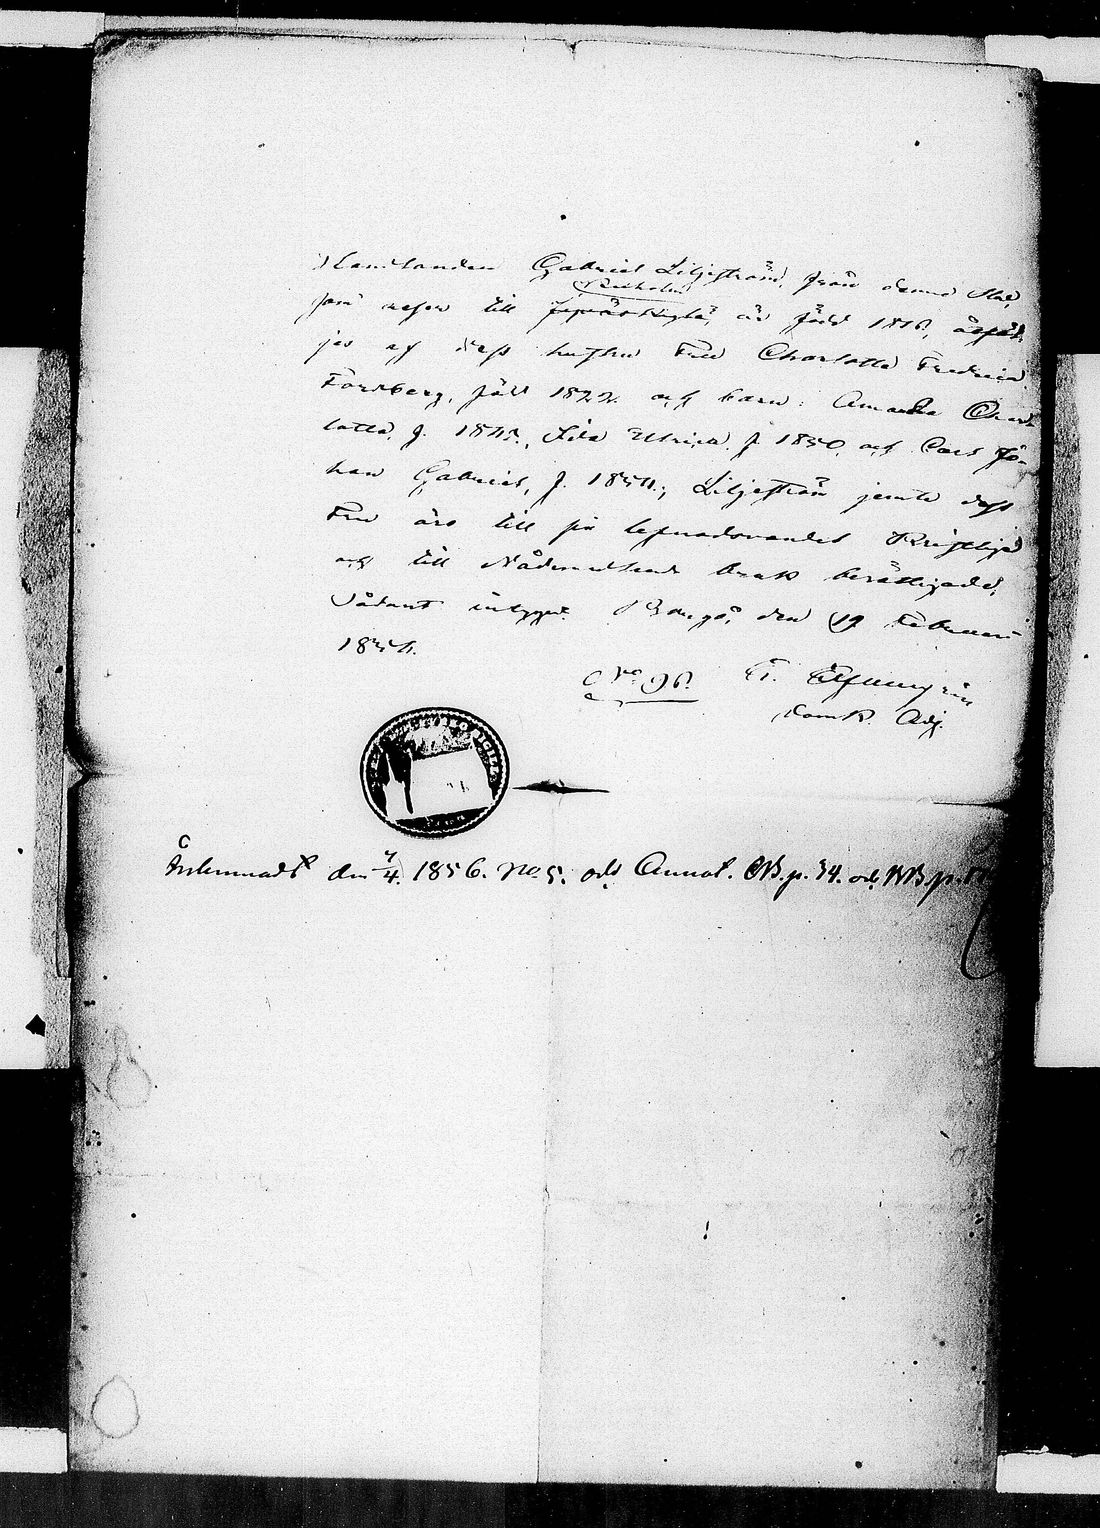 Handlanden Gabriel Liljeström, från denna Stad,
Rikholm
som reser till är född 1816, åtföl-
jes af dess hustru Fru Charlotta Fredrica
Forsberg, född 1822 och barn: Amanda Char-
lotta, f. 1845, Ida Ulrica f 1850 och Carl Jo-
han Gabriel, f. 1854; Liljeström jemte dess
Fru äro till sin lefnadsvandel Kristlige
och till Nådemedlens bruk berättigade,
Sådant intygas. Borgå, den 19 Februari
185
No 96. T.
domk. Adj.
Inlemnadt den 7/4. 1856. No 5. och Annot. CB. p. 34. och BB. p.